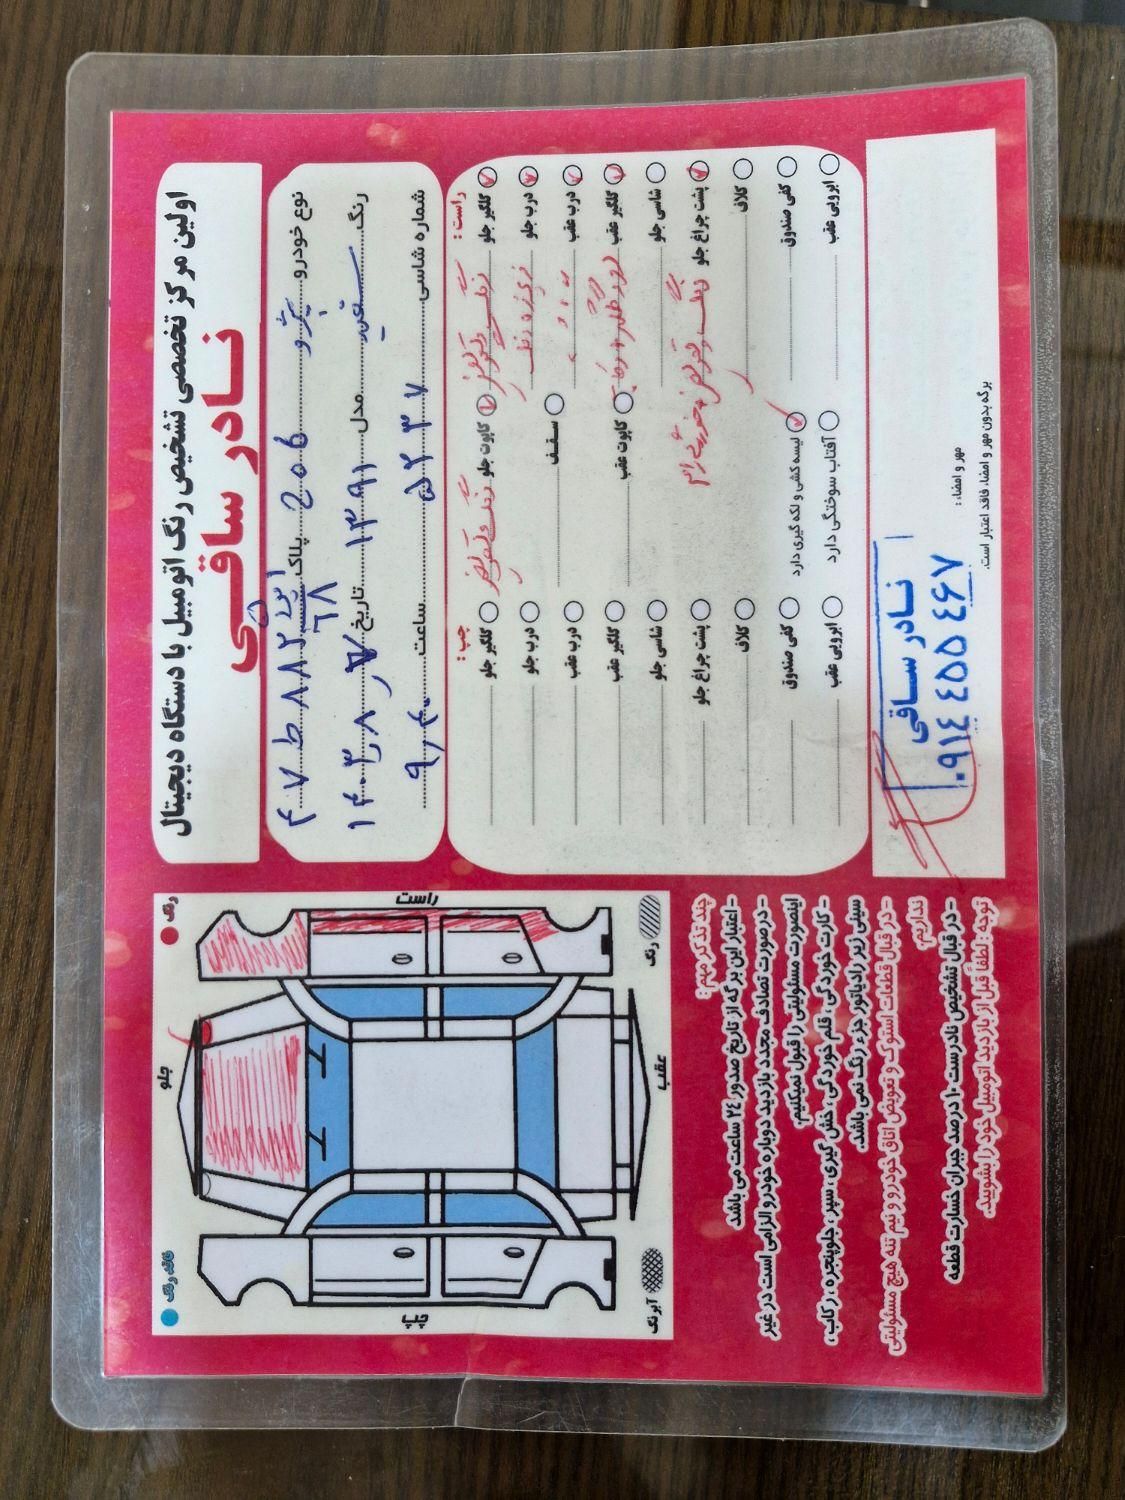 اولین مرکز تخصصی تشخیص رنگ اتومبیل با دستگاه دیجیتال
نادر ساقی
نوع خودرو پژو 206 پلاک ایران ۶۸ ۸۸۲ ط ۴۷
رنگ سفید مدل ۱۳۹۱ تاریخ ۱۴۰۳/۸/۷
شماره شاسی ۵۲۳۷ ساعت ۹/۴۰
راست :
گلگیر جلو رنگ و تعویض
درب جلو رنگ
درب عقب
گلگیر عقب
شاسی جلو
پشت چراغ جلو رنگ و تعویض
کلاف
کفی صندوق
ابرویی عقب
کاپوت جلو رنگ و تعویض
سقف
کاپوت عقب
لیسه کشی و لکه گیری دارد
آفتاب سوختگی دارد
چپ :
گلگیر جلو
درب جلو
درب عقب
گلگیر عقب
شاسی جلو
پشت چراغ جلو
کلاف
کفی صندوق
ابرویی عقب
مهر و امضاء :
برگه بدون مهر و امضاء، فاقد اعتبار است.
نادر ساقی
۰۹۱۴ ۴۵۵ ۴۶۷
رنگ
فاقد رنگ
جلو
راست
چپ
عقب
رنگ
آبرنگ
چند تذکر مهم:
- اعتبار این برگه از تاریخ صدور ۲۴ ساعت می باشد
- در صورت تصادف مجدد بازدید دوباره خودرو الزامی است در غیر
اینصورت مسئولیتی را قبول نمیکنیم.
- کارت خوردگی، قلم خوردگی، خش گیری، سپر، جلوپنجره، رکاب،
سینی زیر رادیاتور جزء رنگ نمی باشد.
- در قبال قطعات استوک و تعویض اتاق خودرو و نیم تنه هیچ مسئولیتی
نداریم.
- در قبال تشخیص نادرست ۱۰ درصد جبران خسارت قطعه
توجه : لطفاً قبل از بازدید اتومبیل خود را بشویید.